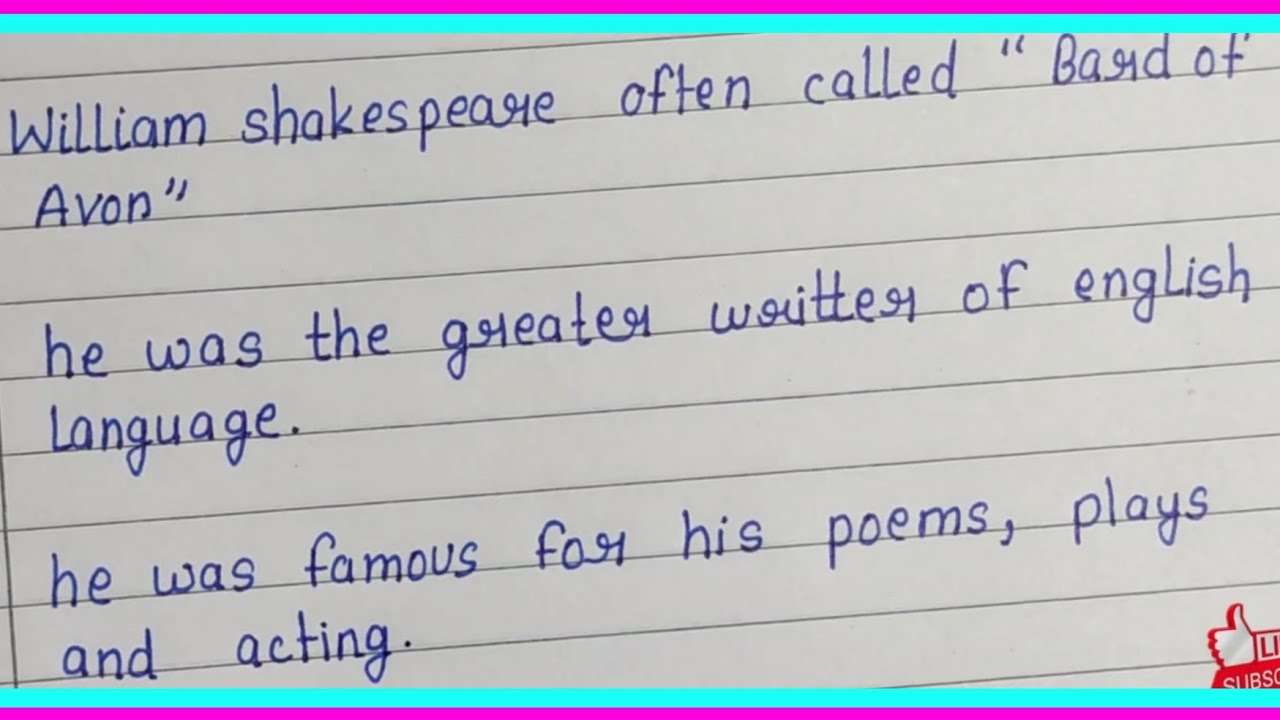 William shakespeare often called "Bard of
Avon"
he was the greater writter of english
language.
he was famous for his poems, plays
and acting.
LI
SUBSC